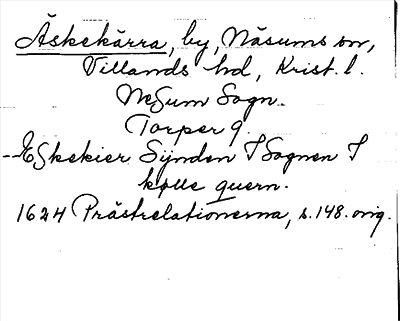 Äskekärra, by, Näsums sn,
Villands hd, Krist. l.
NeSum Sogn.
Torper 9.
--ESkekier Synden I Sognen I
kolle quern.
1624 Prästrelationerna, s. 148. orig.